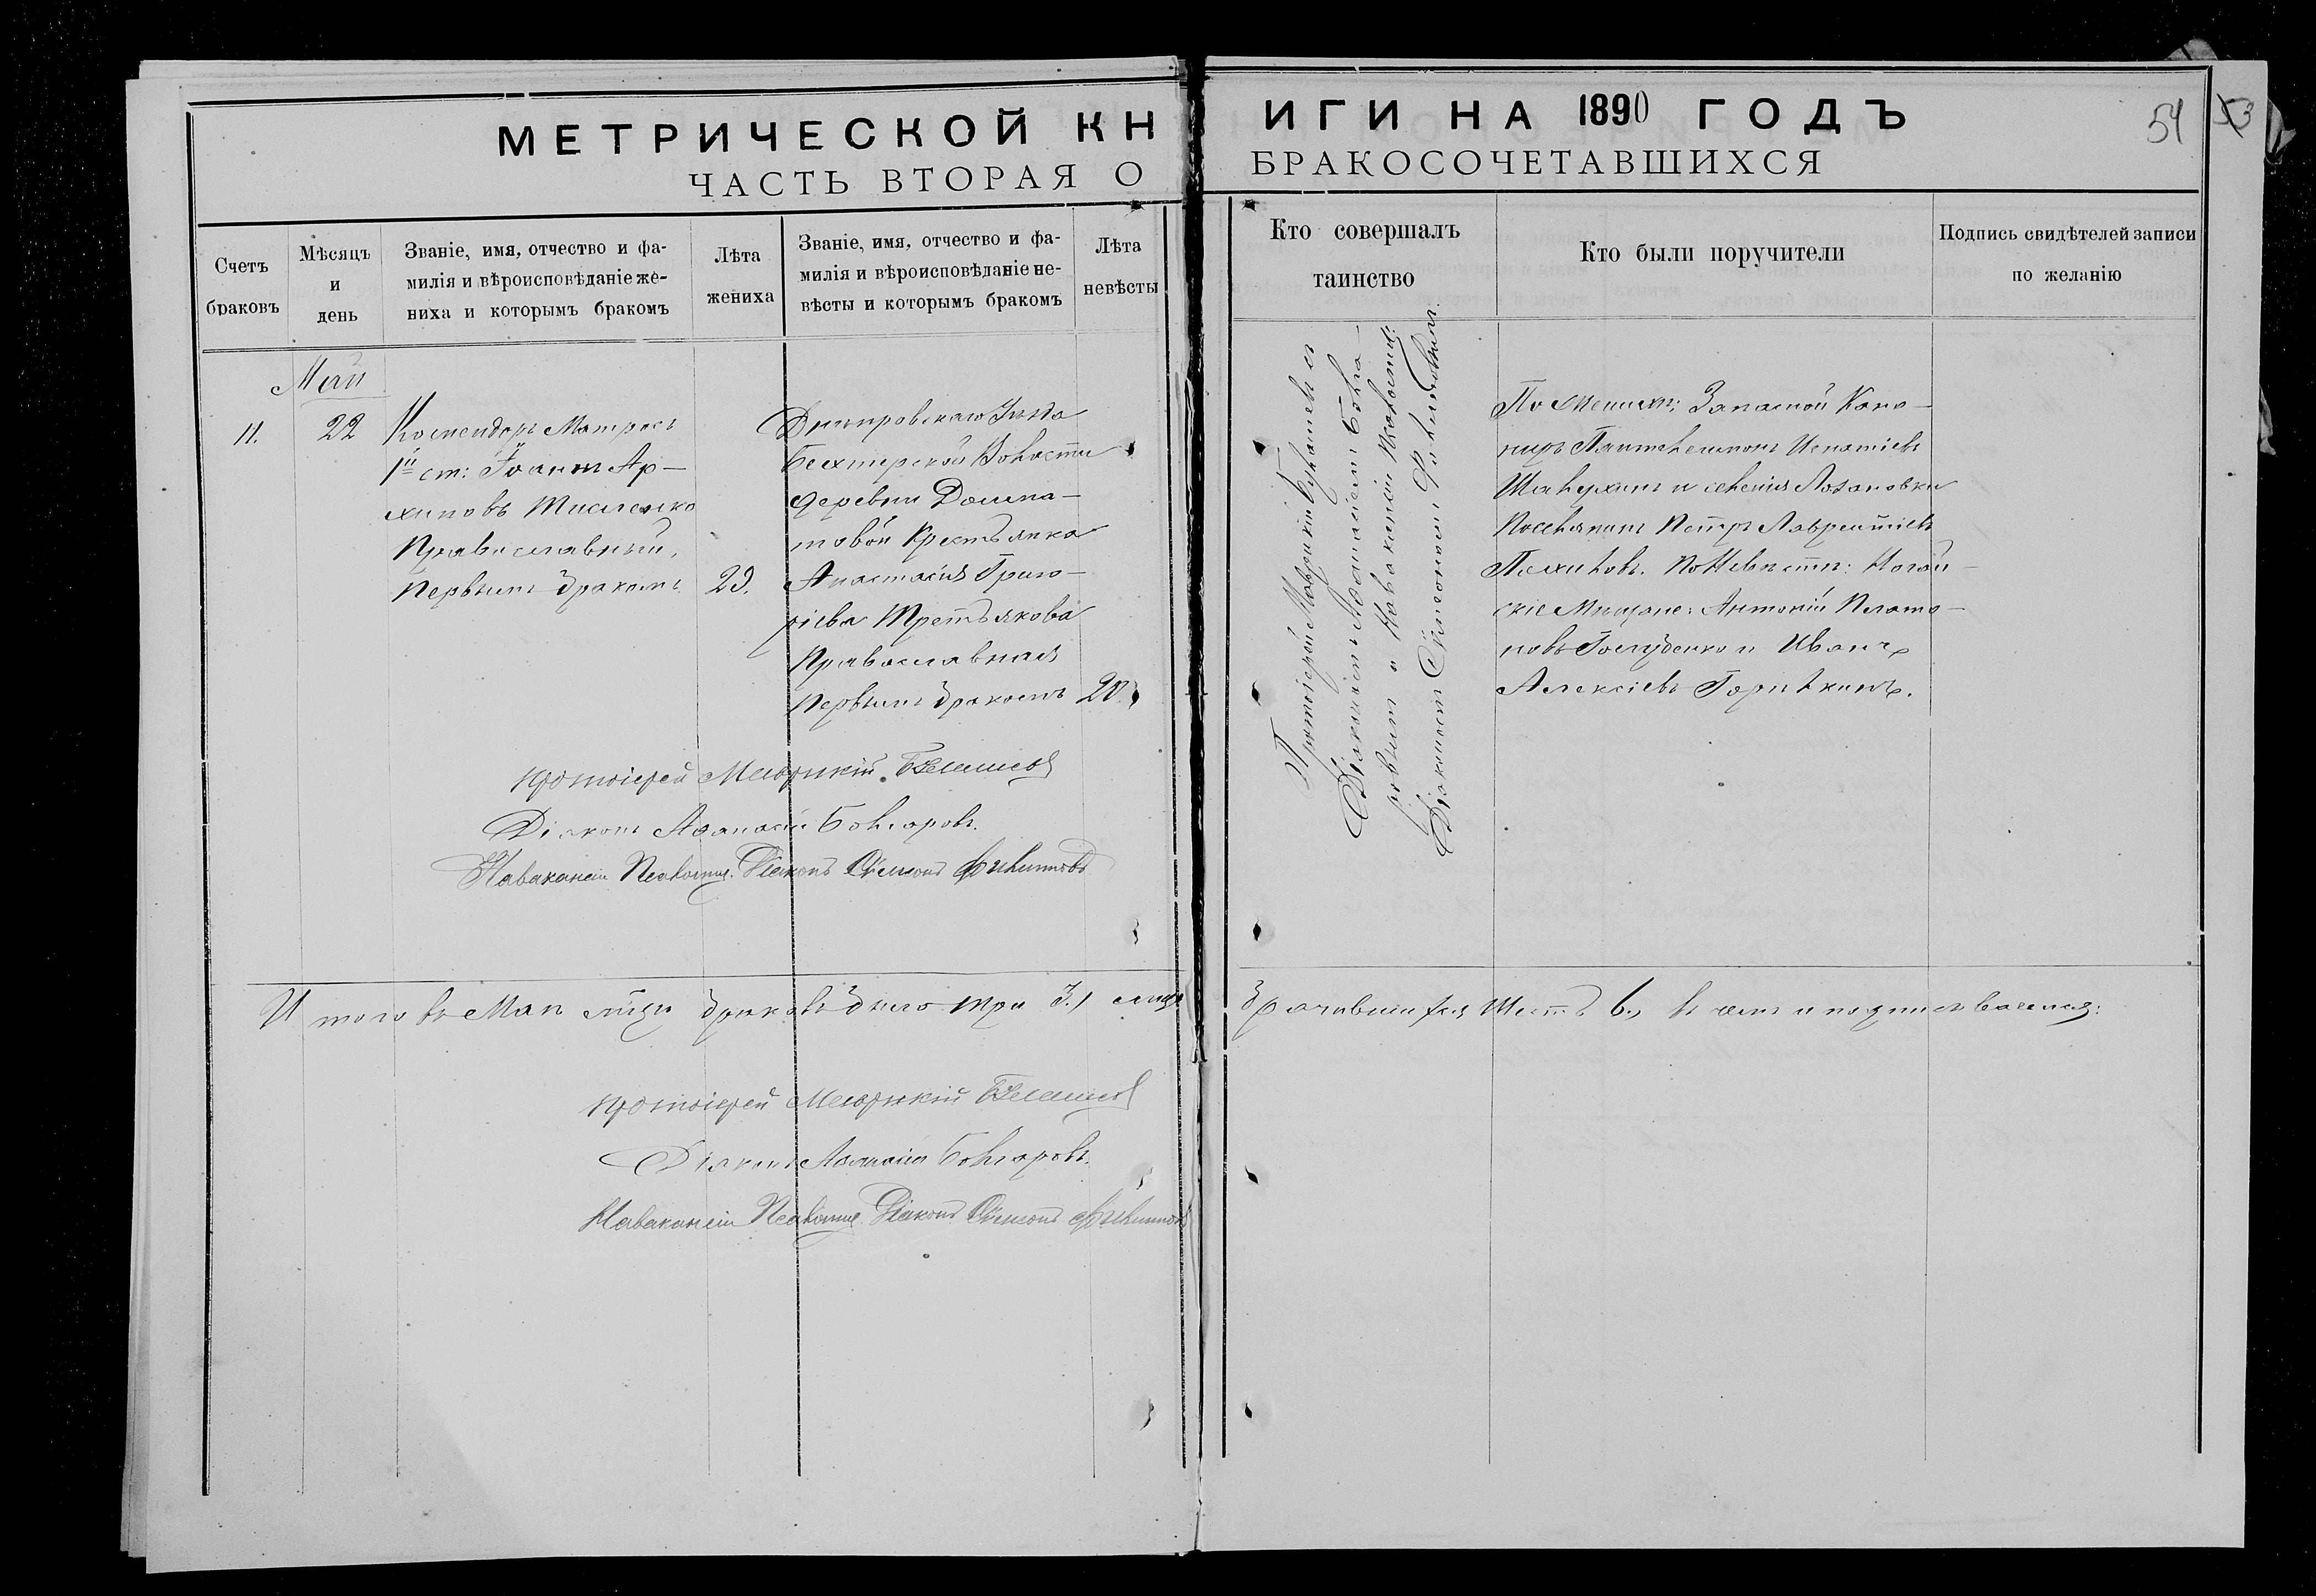 МЕТРИЧЕСКОЙ КНИГИ НА 1890 ГОДЪ
ЧАСТЬ ВТОРАЯ О БРАКОСОЧЕТАВШИХСЯ
54
53
Счетъ браковъ
Мѣсяцъ и день
Званіе, имя, отчество и фа-
милія и вѣроисповѣданіе же-
ниха и которымъ бракомъ
Лѣта жениха
Званіе, имя, отчество и фа-
милія и вѣроисповѣданіе не-
вѣсты и которымъ бракомъ
Лѣта невѣсты
Кто совершалъ
таинство
Кто были поручители
Подпись свидѣтелей записи
по желанію
Май
11.
22
Комендоръ Матросъ
1й ст: Іоаннъ Ар-
хиповъ
Православный,
Первымъ бракомъ
29.
Днѣпровскаго Уѣзда
Бехтерской Волости
деревни Долма-
товой Крестьянка
Анастасія Григо-
ріева Третьякова
Православная
Первымъ бракомъ
20
Протоіерей Маврикій
Діакономъ Аѳанасіемъ Болга-
ровымъ и На вакансіи Псаломщ.
Діакономъ Сѵмеономъ Филипповымъ
По Женихѣ: Запасной Кано-
ниръ Пантелеимонъ Игнатіевъ
и селенія Лозановки
Поселянинъ Петръ Лаврентіевъ
По Невѣстѣ: Ногай-
скіе Мѣщане: Антоній Плато-
новъ и Иванъ
Алексіевъ
Протоіерей Маврикій
Діаконъ Аѳанасій Болгаровъ.
На вакансіи Псаломщ. Діаконъ Сѵмеонъ Филипповъ
Итого въ Маѣ мцѣ браковъ было три 3., а лицъ
брачившихся Шесть 6., въ чемъ и подписываемся:
Протоіерей Маврикій
Діаконъ Аѳанасій Болгаровъ.
На вакансіи Псаломщ. Діаконъ Сѵмеонъ Филипповъ